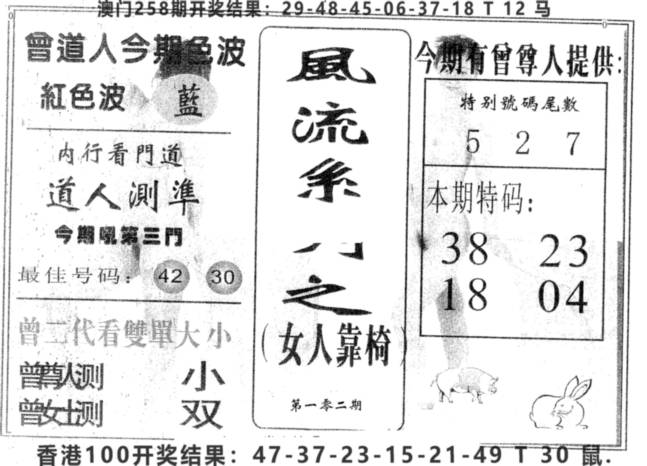 澳门258期开奖结果：29-48-45-06-37-18 T 12 马
曾道人今期色波
紅色波 藍
内行看門道
道人測準
今期吼第三門
最佳号码： 42 30
曾二代看雙單大小
曾尊人测 小
曾女士测 双
風
流
系
之
（女人靠椅）
第一零二期
今期有曾尊人提供:
特别號碼尾數
5 2 7
本期特码:
38 23
18 04
香港100开奖结果：47-37-23-15-21-49 T 30 鼠.